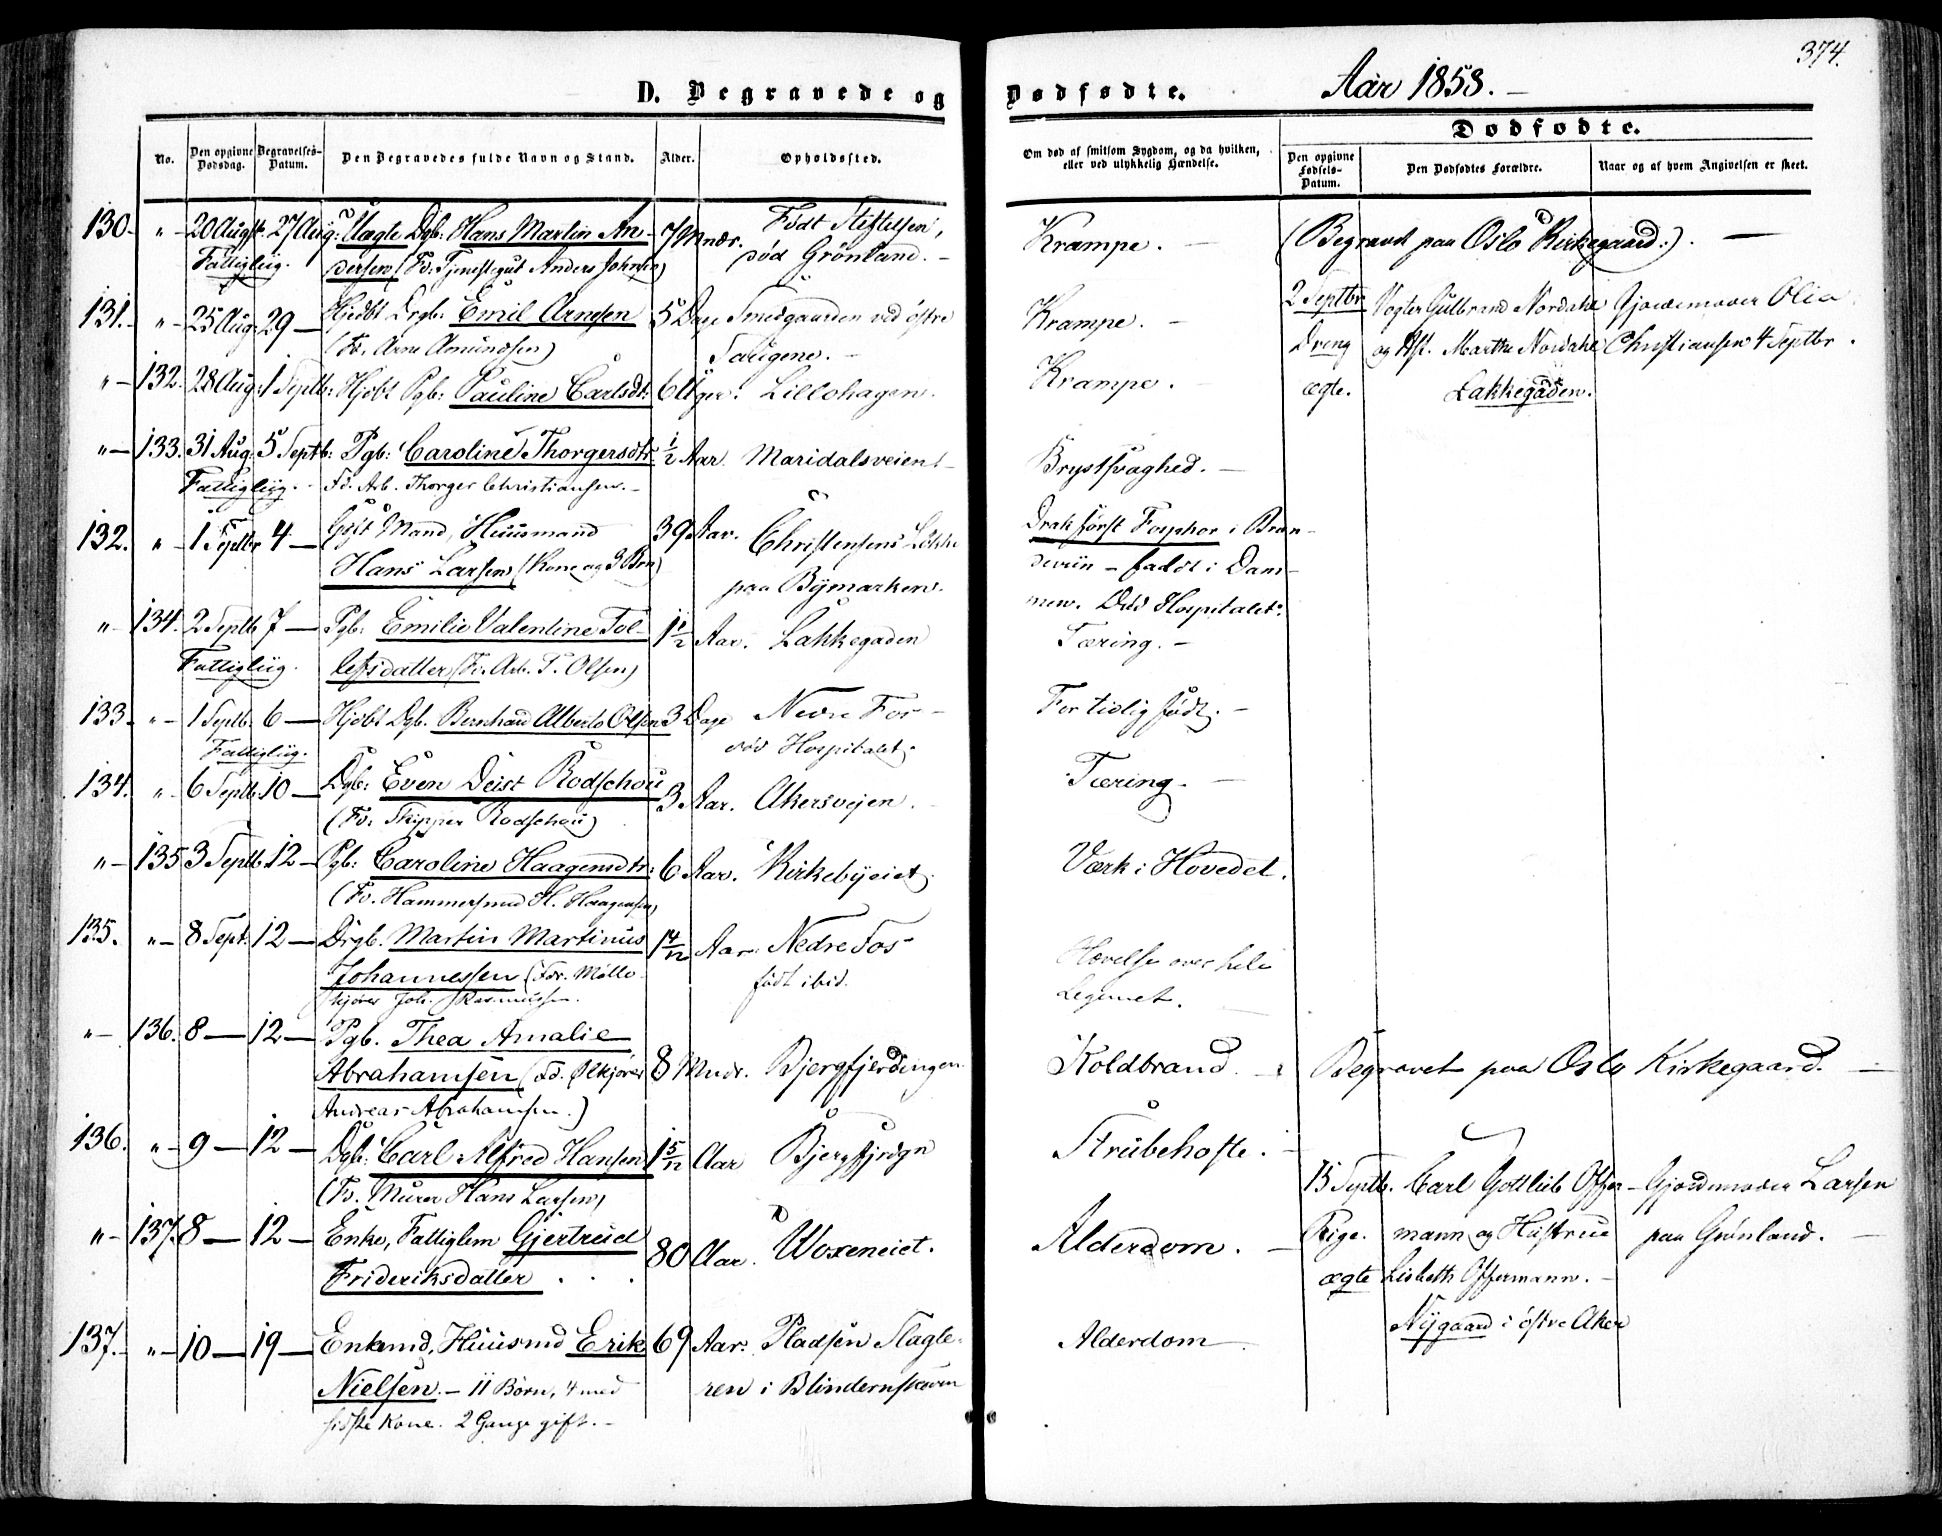 374.
D. Begravede og Dødfødte. Aar 1858. –
Dødfødte.
No. Den opgivne Dødsdag. Begravelses-Datum. Den Begravedes fulde Navn og Stand. Alder. Opholdssted.
Om død af smitsom Sygdom, og da hvilken, eller ved ulykkelig Hændelse. Den opgivne Fødsels-Datum. Den Dødfødtes Forældre. Naar og af hvem Angivelsen er skeet.
130. " – 20 Augst. 27 Aug: Uægte Dgb: Hans Martin An- 7 Mndr. Født Stiftelsen, Krampe. – (Begravet paa Oslo Kirkegaard:). –
Fattigliig. dersen (Fd. Tjenestegut Anders Johnsen) død Grønland. –
131. " – 25 Aug: 29 – Hjdbt Drgb: Emil Arnesen 5 Dage Smedgaarden ved østre Krampe. –
(Fd. Arne Amundsen) Saugene. –
2 Septbr Vogter Gulbrand Nordahl Gjordemoder Olia
Dreng og Hst. Marthe Nordahl Christiansen 4 Septbr.
ægte. Lakkegaden.
" – 132. 28 Aug: 1 Septb: Hjdbt Pgb: Pauline Carlsdt: 6 Uger. Lillohagen. Krampe. –
" – 133. 31 Aug: 5 Septb: Pgb: Caroline Thorgersdtr. ½ Aar. Maridalsveien – Brystsvaghed. –
Fattigliig. Fd. Arb. Thorger Christiansen. –
132. " – 1 Septbr 4 – Gift Mand, Huusmand 39 Aar. Christensens Løkke Drak først Fosphor i Bræn-
Hans Larsen (Kone og 3 Brn) paa Bymarken. deviin – faldt i Dam-
men. Død Hospitalet.
" – 134. 2 Septb 7 – Pgb: Emilie Valentine Tol- 1½ Aar. Lakkegaden Tæring. –
Fattigliig. lefsdatter (Fd. Arb. T. Olsen)
133. " – 1 Septb. 6 – Hjdbt Dgb. Bernhard Alberto Olsen 3 Dage Nedre Fos – For tidlig født. –
Fattigliig. død Hospitalet.
134. " – 6 Septb 10 – Dgb: Even Deist Rodschou 3 Aar. Akersvejen. Tæring. –
(Fd. Skipper Rodschou)
" – 135 3 Septb 12 – Pgb: Caroline Haagensdtr: 6 Aar. Kirkebyeiet. Værk i Hovedet.
(Fd. Hammersmed H. Haagensen)
135. " – 8 Sept. 12 – Drgb. Martin Martinus 1 4/12 Aar. Nedre Fos Hævelse over hele
Johannessen (Fdr. Mølle- født ibid. Legemet.
kjører Joh. Rasmussen.
" – 136. 8 – 12 – Pgb. Thea Amalie
Abrahamsen (Fd. Ølkjører 8 Mndr. Bjergfjerdingen. Koldbrand. – Begravet paa Oslo Kirkegaard. –
Andreas Abrahamsen.)
136. " – 9 – 12 – Dgb: Carl Alfred Hansen 1 5/12 Aar Bjergfjrdgn Strubehoste.
(Fd. Murer Hans Larsen)
15 Septb. Carl Gottlieb Offer- Gjordemoder Larsen
Pige. mann og Hustrue paa Grønland. –
ægte Lisbeth Offermann. –
Nygaard i østre Aker
" – 137. 8 – 12 – Enke, Fattiglem Gjertrud 80 Aar. Woxeneiet. Alderdom. –
Frideriksdatter . . .
137. " – 10 – 19 – Enkmd, Huusmd Erik 69 Aar. Pladsen Slagte- Alderdom –
Nielsen. – 11 Børn, 4 med ren i Blindernskoven
sidste Kone. 2 Gange gift. –